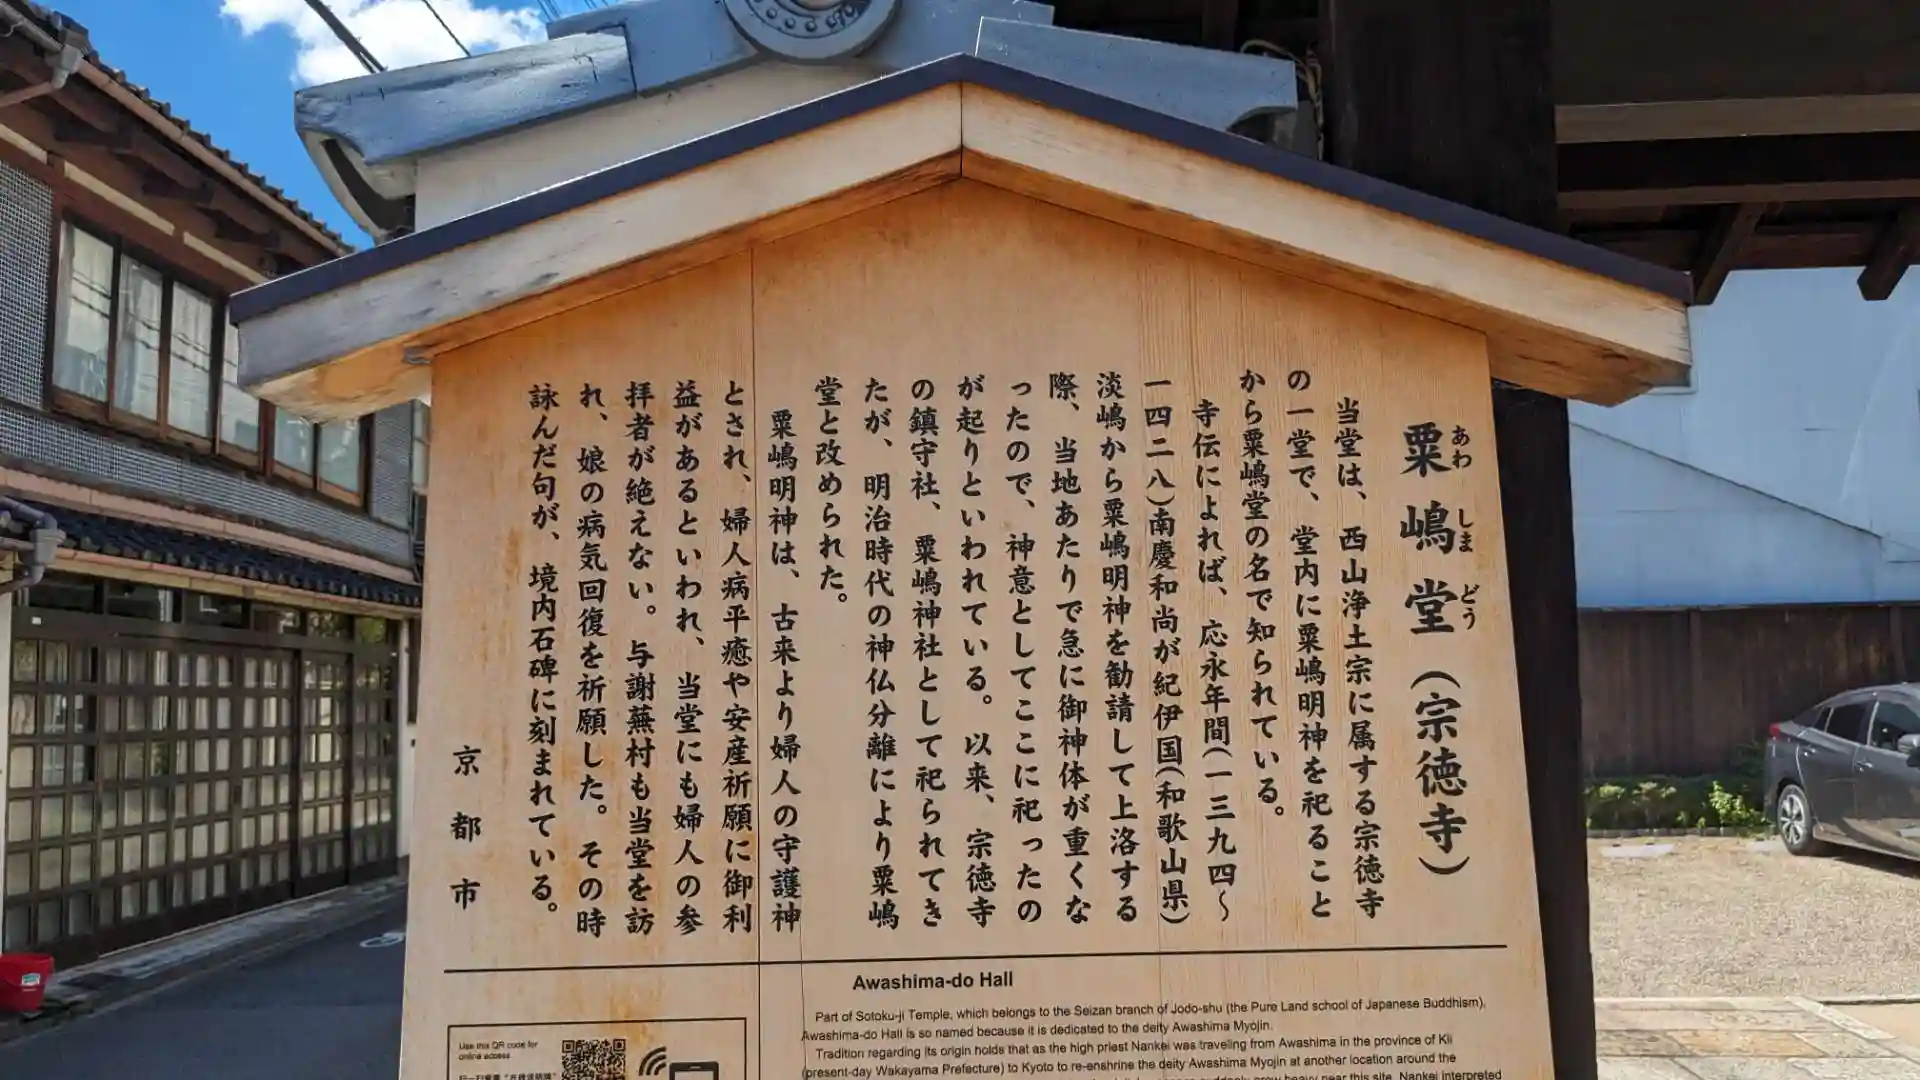 粟嶋堂（宗徳寺）
あわ しま どう
当堂は、西山浄土宗に属する宗徳寺
の一堂で、堂内に粟嶋明神を祀ること
から粟嶋堂の名で知られている。
寺伝によれば、応永年間（一三九四～
一四二八）南慶和尚が紀伊国（和歌山県）
淡嶋から粟嶋明神を勧請して上洛する
際、当地あたりで急に御神体が重くな
ったので、神意としてここに祀ったの
が起りといわれている。以来、宗徳寺
の鎮守社、粟嶋神社として祀られてき
たが、明治時代の神仏分離により粟嶋
堂と改められた。
粟嶋明神は、古来より婦人の守護神
とされ、婦人病平癒や安産祈願に御利
益があるといわれ、当堂にも婦人の参
拝者が絶えない。与謝蕪村も当堂を訪
れ、娘の病気回復を祈願した。その時
詠んだ句が、境内石碑に刻まれている。
京都市
Awashima-do Hall
Part of Sotoku-ji Temple, which belongs to the Seizan branch of Jodo-shu (the Pure Land school of Japanese Buddhism),
Awashima-do Hall is so named because it is dedicated to the deity Awashima Myojin.
Tradition regarding its origin holds that as the high priest Nankei was traveling from Awashima in the province of Kii
(present-day Wakayama Prefecture) to Kyoto to re-enshrine the deity Awashima Myojin at another location around the
suddenly grew heavy near this site. Nankei interpreted
Use this QR code for
online access